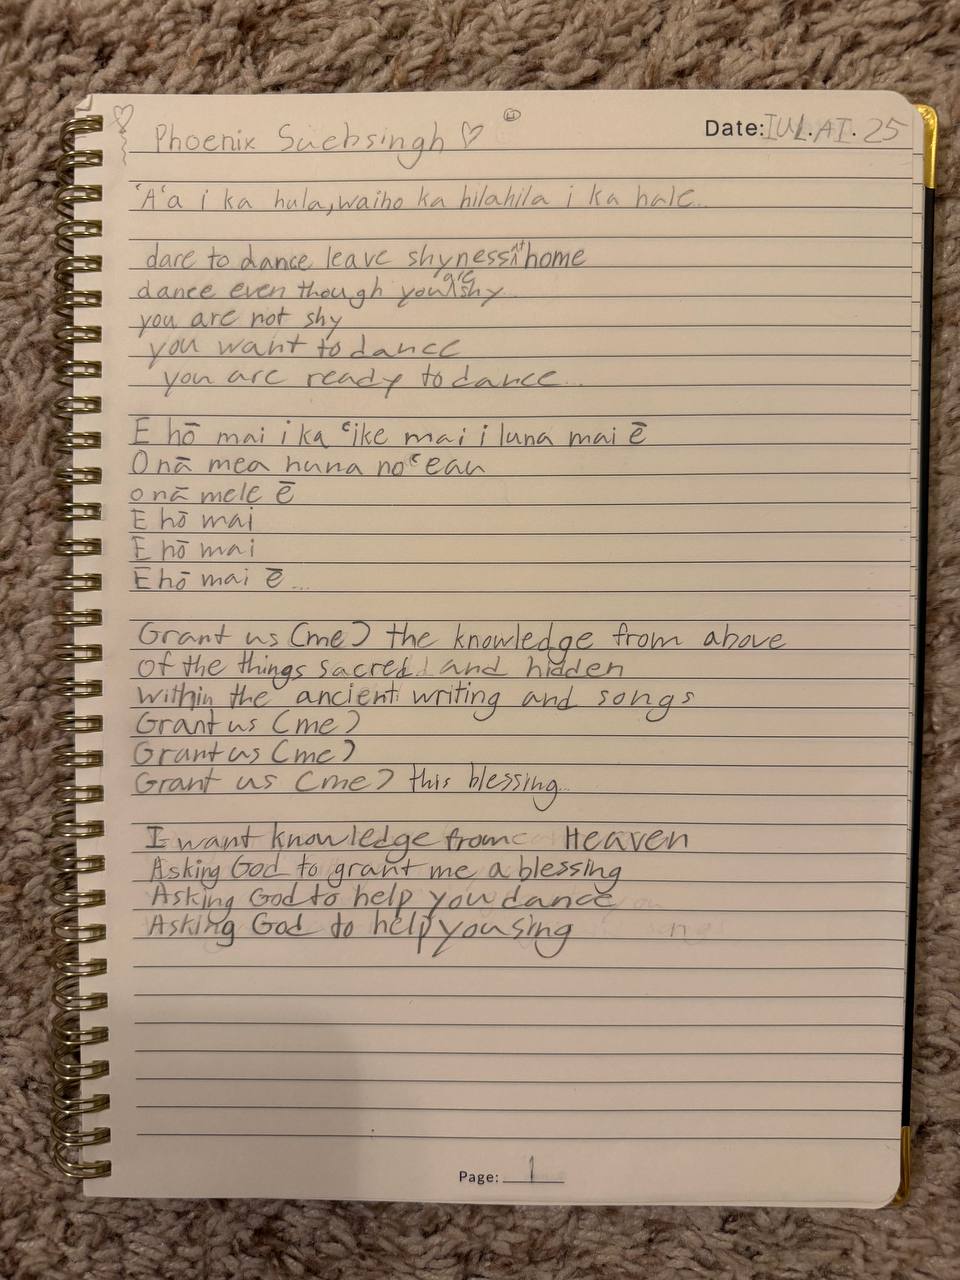 Phoenix Suebsingh
Date: IUL.AI. 25
ʻAʻa i ka hula, waiho ka hilahila i ka hale...
dare to dance leave shyness at home
dance even though you are shy...
you are not shy
you want to dance
you are ready to dance...
E hō mai i ka ʻike mai i luna mai ē
O nā mea huna noʻeau
o nā mele ē
E hō mai
E hō mai
E hō mai ē...
Grant us (me) the knowledge from above
of the things sacred and hidden
within the ancient writing and songs
Grant us (me)
Grant us (me)
Grant us (me) this blessing...
I want knowledge from Heaven
Asking God to grant me a blessing
Asking God to help you dance
Asking God to help you sing
Page: 1